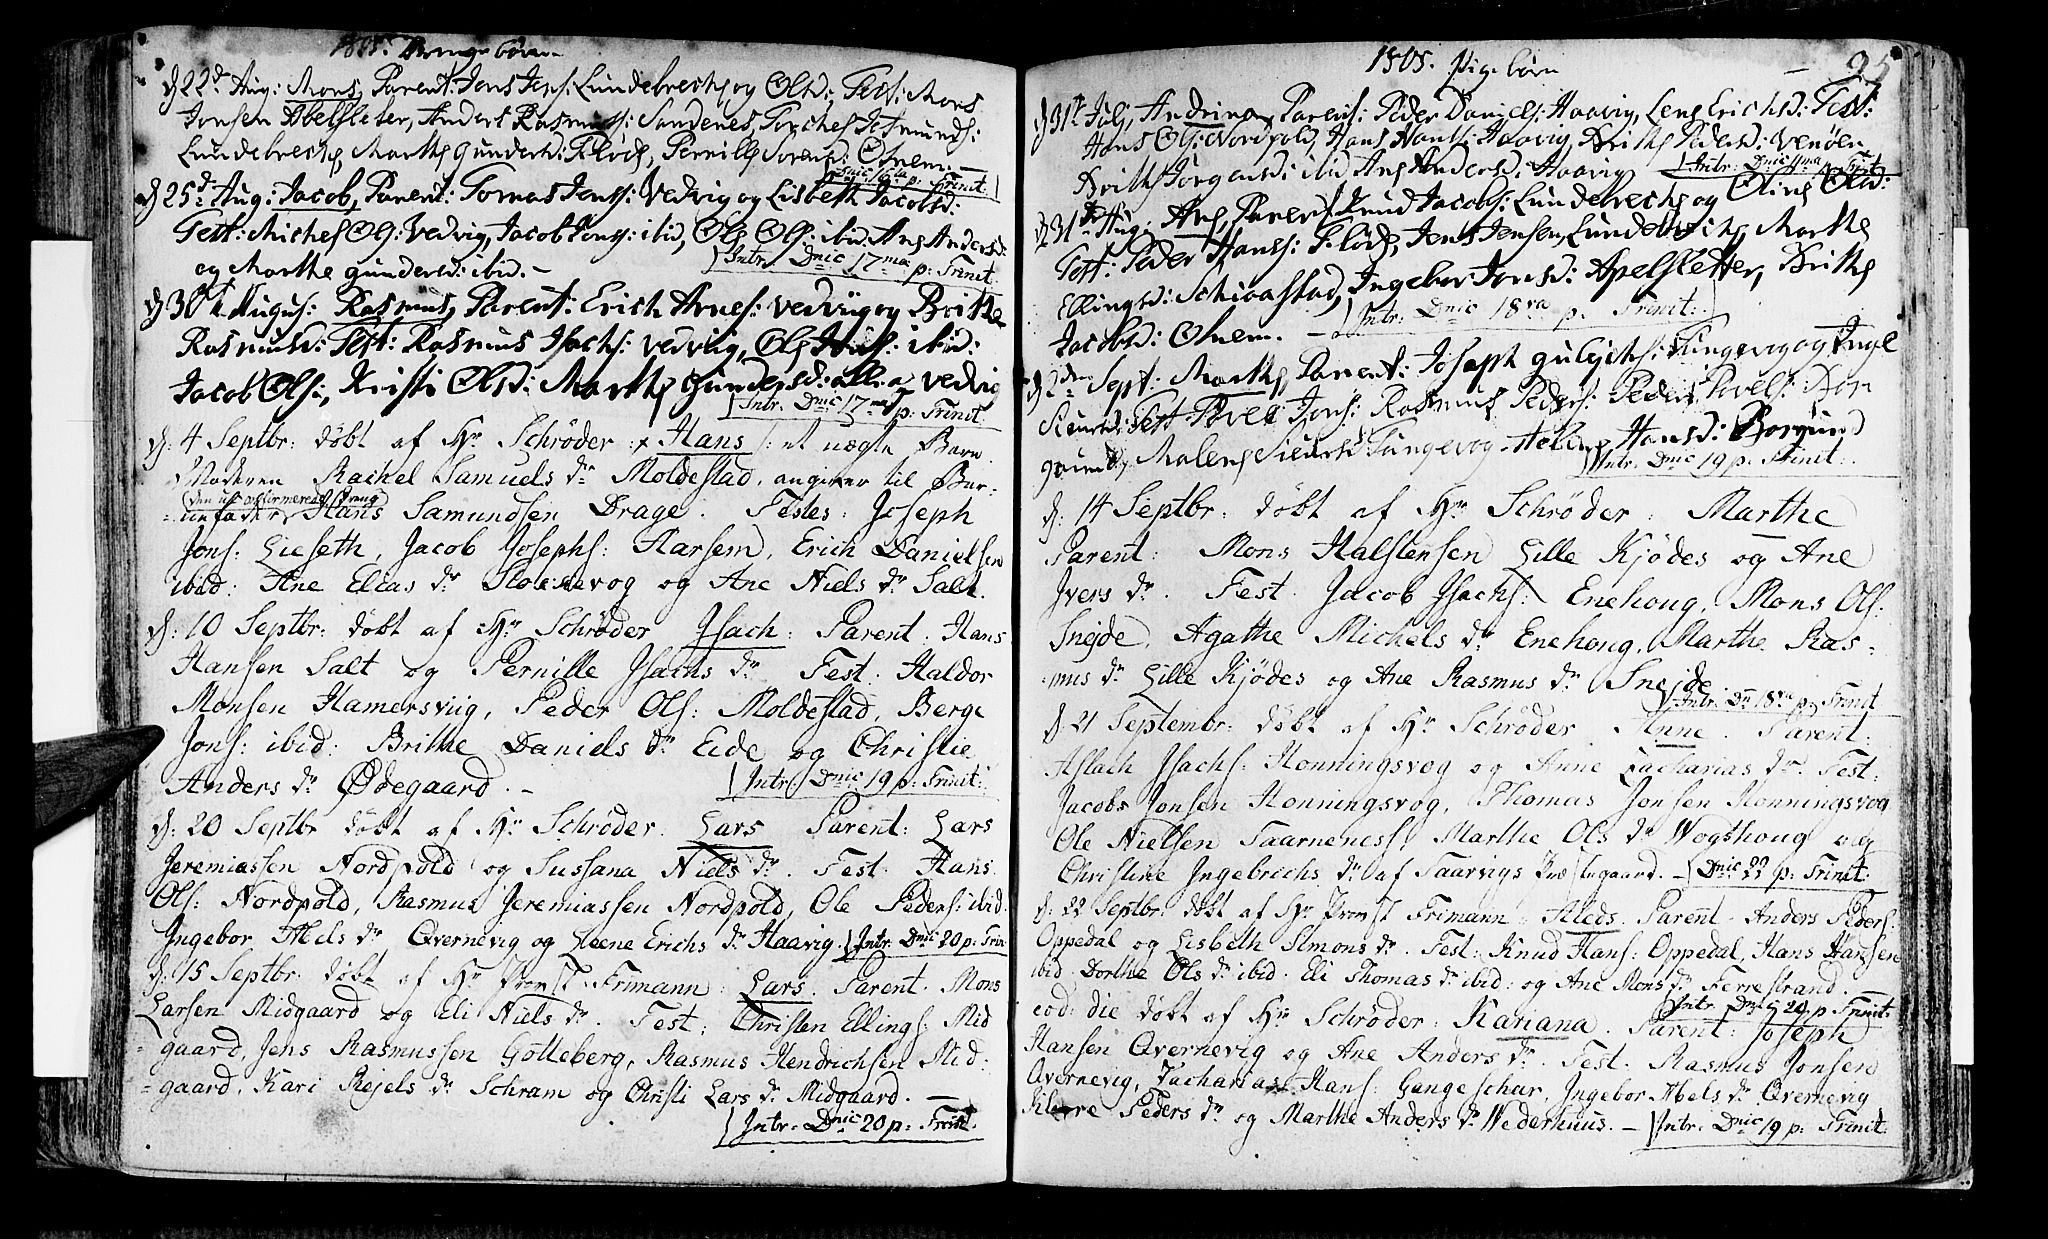 1805. Drenge børn
d 22d Aug: Mons, Parent: Jens Jens: Lundebrech og Olsd:, Test: Mons
Jonsen Abelsleter, Andert Rasmuss: Sandenes, Torchel Jetmunds:
Lundebrech, Marthe Gundersd: Flode, Pernille Sorensd: Otnem. —
Intr: Dnic 16 p: Trinit:
d 25d Aug: Jacob, Parent: Tomas Jons: Vedvig og Lisbeth Jacobsd:
Test: Michel Ols: Vedvig, Jacob Jons: ibid, Ole Ols: ibid: Ane Andersd:
og Marthe Gundersd: ibid. —
Intr. Dnic 17ma p: Trinit
d 30te Augus: Rasmus, Parent: Erich Arnes: Vedvig og Brithe
Rasmusd: Test: Rasmus Isachs: Vedvig, Ole Jons: ibid:
Jacob Ols:, Kristi Olsd: Marthe Gundersd: alle a Vedvig
Intr. Dnic 17ma p: Trinit.
d: 4 Septbr: døbt af Hr Schrøder : Hans /: et uægte Barn
Moderen Rachel Samuels dr Moldestad, angiver til Bar-
-nefader Hans Samundsen Drage. Testes: Joseph
Jons: Lieseth, Jacob Josephs: Aarsem, Erich Danielsen
ibid: Ane Elias dr Stoerevog og Ane Niels dr Salt.
d: 10 Septbr: døbt af Hr Schrøder Isach: Parent. Hans
Hansen Salt og Pernille Isachs dr Test. Haldor
Monsen Hamersviig, Peder Ols: Moldestad, Berge
Jons: ibid: Brithe Daniels dr Eide og Christie
Anders dr Ødegaard. —
Intr: Dnic 19 p: Trinit:
d: 20 Septbr døbt af Hr Schrøder. Lars Parent: Lars
Jeremiassen Nordpold og Sussana Niels dr. Test. Hans
Ols: Nordpold, Rasmus Jeremiassen Nordpold, Ole Peders: ibid.
Ingebor Abels dr Qvernevig og Leene Erichs dr Haavig. Intr: Dnic 20 p: Trin
d: 15 Septbr: døbt af Hr Provst Frimann: Lars. Parent. Mons
Larsen Midgaard og Eli Niels dr. Test: Christen Ellings: Mid
-gaard, Jens Rasmussen Gotteberg, Rasmus Hendrichsen Mid:
-gaard, Kari Rejels dr Schram og Christi Lars dr Midgaard. —
Intr. Dnic 20 p: Trinit.
1805. Pige børn
95
d 31te July Andrina, Parent: Peder Daniels: Haavig, Lene Erichsd: Test:
Hans Ols: Nordpold, Hans Hans: Haavig, Brithe Pedersd: Venøen,
Brithe Jørgensd: ibid Ane Andersd: Haavig
Intr: Dnic p Trinit
d 31te Aug: Ane, Parent Knud Jacobs: Lundebrech og Oline Olsd:
Test: Peder Hans: Flode, Jens Jensen, Lundebrech, Marthe
Ellingsd: Schiraastad, Ingebor Jonsd: Apelsletter, Brithe
Jacobsd: Otnem. —
Intr: Dnic 18va p. Trinit:
d 2den Sept: Marthe, Parent: Joseph Tungevog og Inge
Siursd: Test Povel Jons: Rasmus Peders: Peder Povels: Bor
gund, Malene Siursd Tungevog Hansd: Borgund
Intr. Dnic 19 p. Trinit:
d: 14 Septbr: døbt af Hr Schrøder: Marthe
Parent: Mons Halstensen Lille Kjødes og Ane
Ivers dr. Test. Jacob Isachs: Enehoug, Mons Ols:
Snejde, Agathe Michels dr Enehoug, Marthe Ras-
-mus dr Lille Kjødes og Ane Rasmus dr Snejde
Intr: Dn 18va p. Trinit
d. 21 Septembr: døbt af Hr Schrøder Anne. Parent:
Aslach Isachs: Honningsvog og Anne Zacharias dr. Test:
Jacobs Jonsen Honningsvog, Thomas Jonsen Honningsvog
Ole Nielsen Taarneness, Marthe Ols dr Wogsthoug og
Christine Ingebrechs dr af Saarvigs Præstegaard. — Dnic 22 p: Trinit.
d: 22 Septbr: døbt af Hr Provst Frimann: Aleds. Parent. Anders Peders:
Oppedal og Lisbeth Simons dr. Test: Knud Hans: Oppedal, Hans Hansen
ibid. Dorthe Ols dr ibid. Eli Thomas dr ibid: og Ane Mons dr Ferrestrand. —
Intr. Dnic 20 p. Trinit:
eod: die døbt af Hr Schrøder: Kariana. Parent: Joseph
Hansen Qvernevig og Ane Anders dr. Test. Rasmus Jonsen
Qvernevig, Zacharias Hans: Gangeschar, Ingebor Abels dr Qvernevig
Peders dr og Marthe Anders dr Wederhuus. — Intr. Dnic 19 p: Trinit: